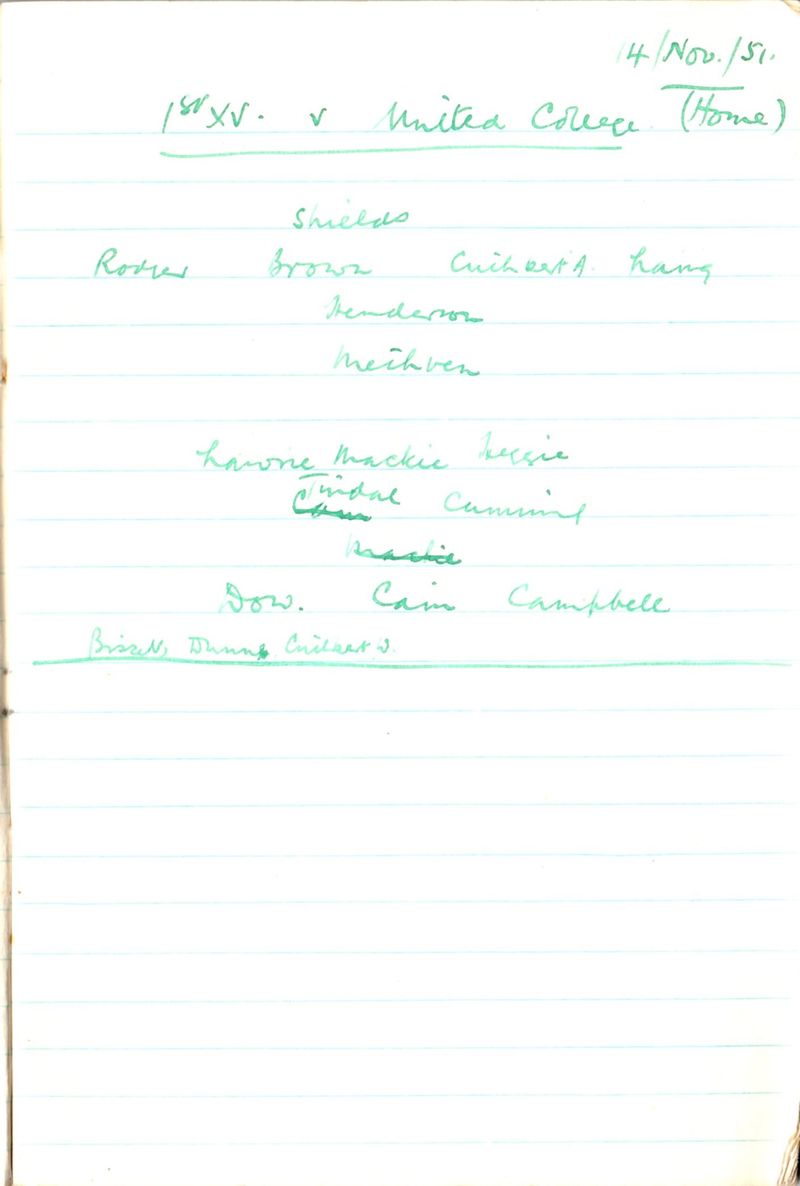 14/Nov./51.
1st XV. v United College (Home)
Shields
Rodger Brown Cuthbert A. Laing
Henderson
Methven
Lawrie Mackie Leggie
Tindal Cumming
Cam
Mackie
Dow. Cam Campbell
Bissett, Dunns, Cuthbert D.